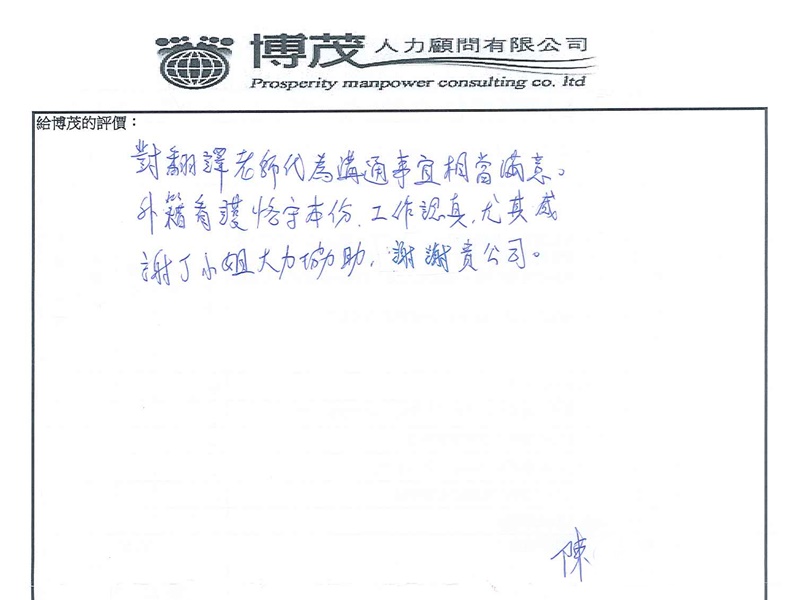 博茂人力顧問有限公司
Prosperity manpower consulting co. ltd
給博茂的評價：
對翻譯老師代為溝通事宜相當滿意。
外籍看護恪守本份、工作認真，尤其感
謝丁小姐大力協助，謝謝貴公司。
陳